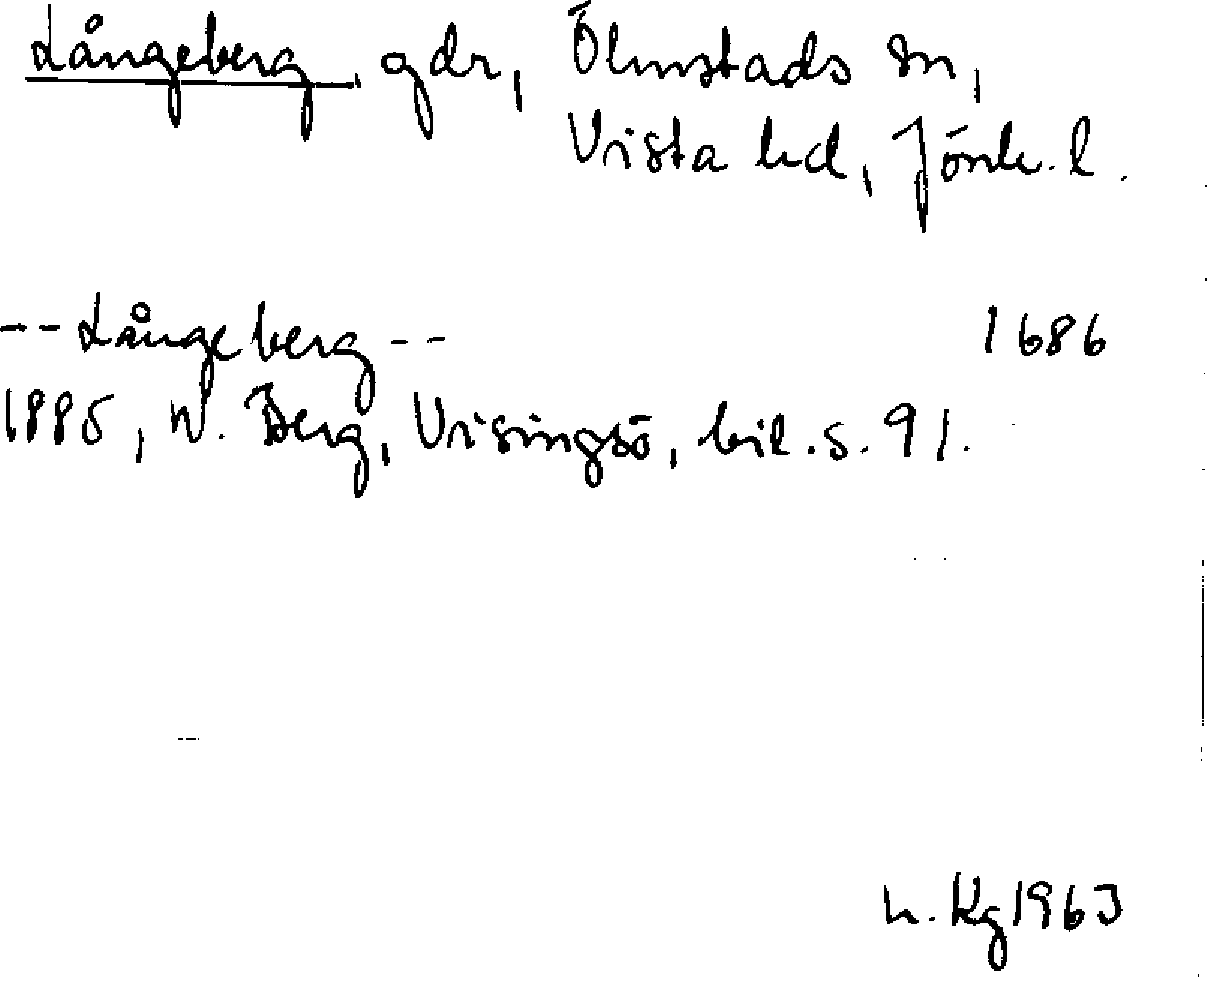 Långeberg, gdr, Ölmstads sn,
Vista hd, Jönk. l.
-- Långeberg -- 1686
1885, W. Berg, Visingsö, bil. s. 91.
h. Kg 1963